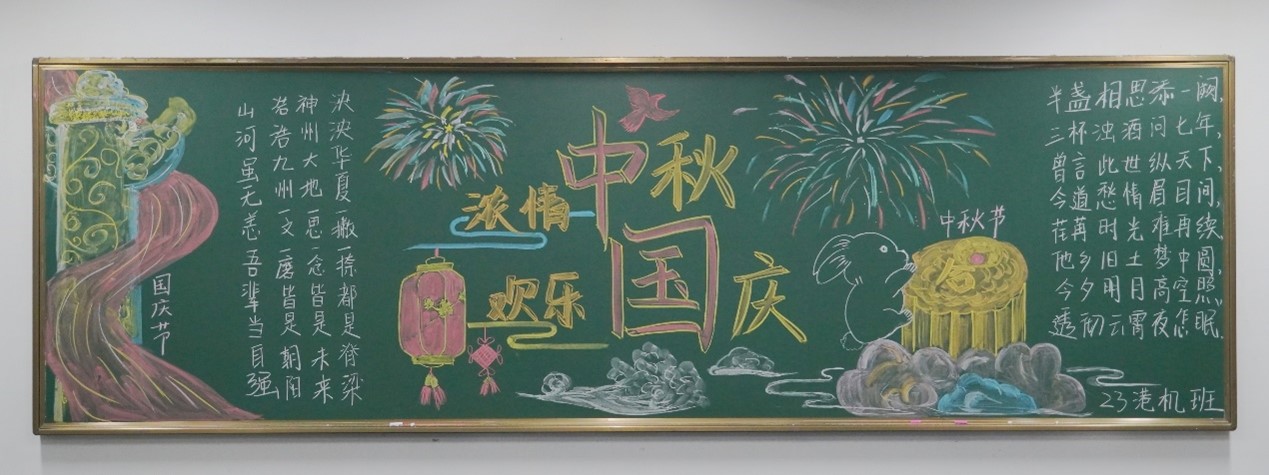 国庆节
泱泱华夏一撇一捺都是脊梁
神州大地一思一念皆是未来
浩浩九州一文一磨皆是朝阳
山河虽无恙吾辈当自强
浓情中秋
欢乐国庆
中秋节
半盏相思添一阙,
三杯浊酒问七年,
曾言此世纵天下,
今道愁情眉目间,
荏苒时光难再续,
他乡旧土梦中圆,
今夕明月高空照,
透彻云霄夜怎眠.
23港机班